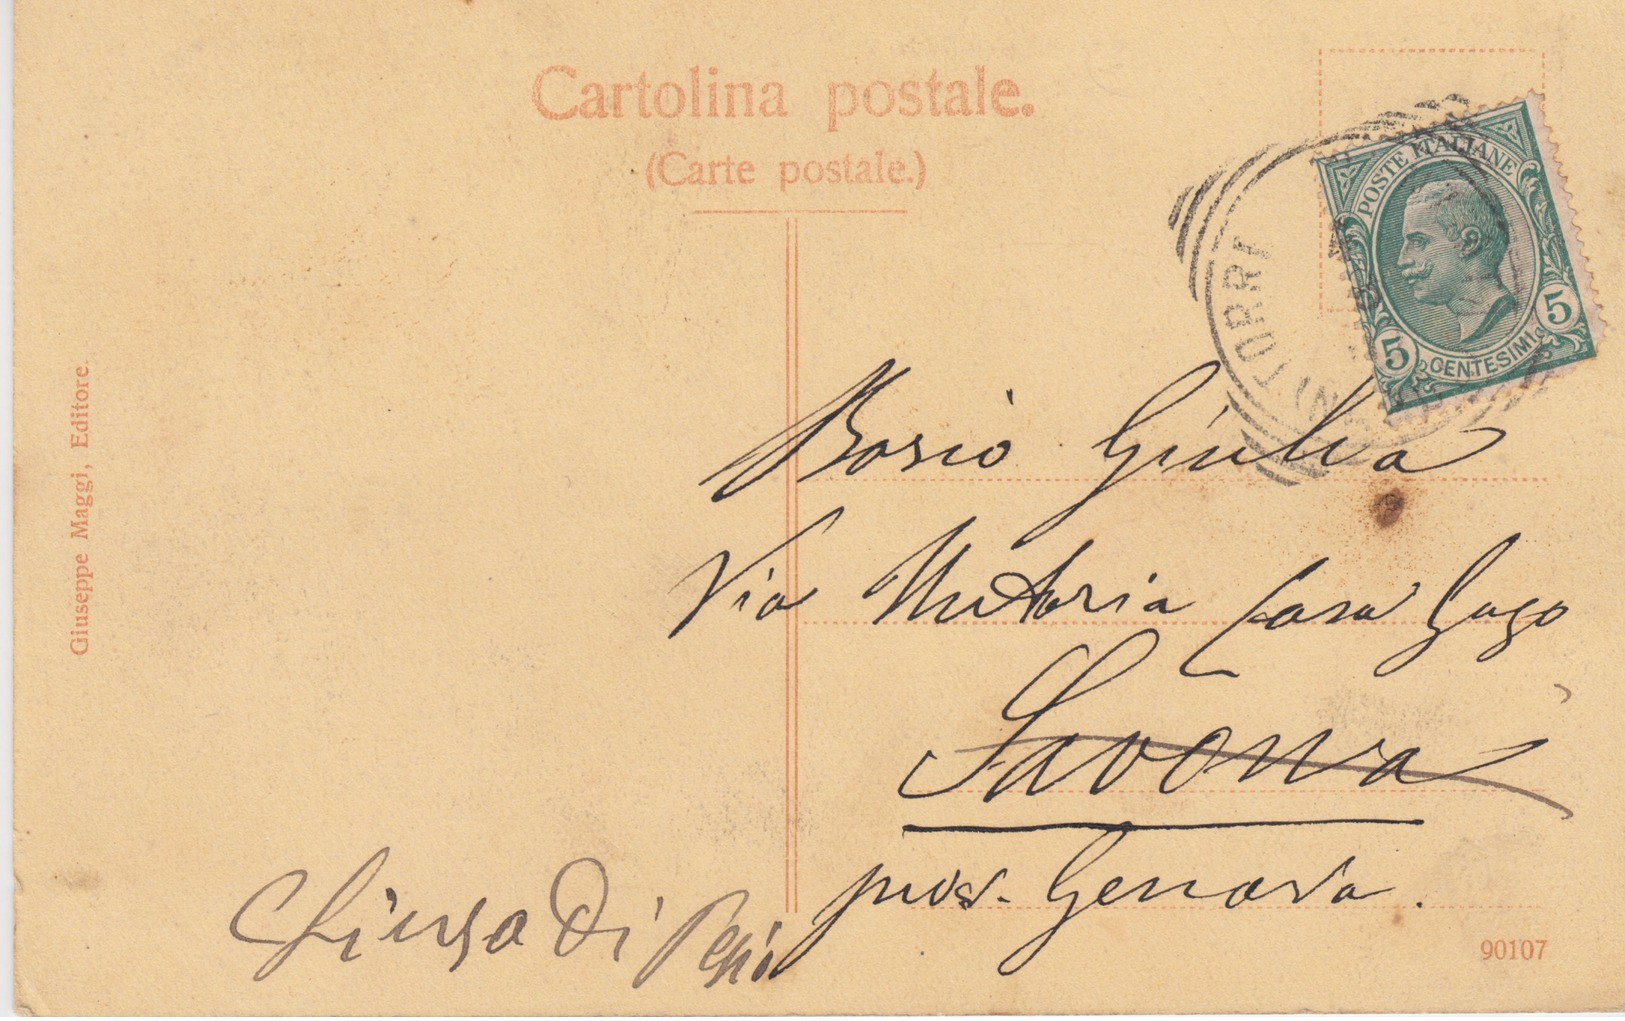 Cartolina postale.
(Carte postale.)
POSTE ITALIANE
5 CENTESIMI 5
TORRI
Giuseppe Maggi, Editore.
Bosio Giulia
Via Casa
Savona
prov. Genova.
Chiusa Di Pesio
90107